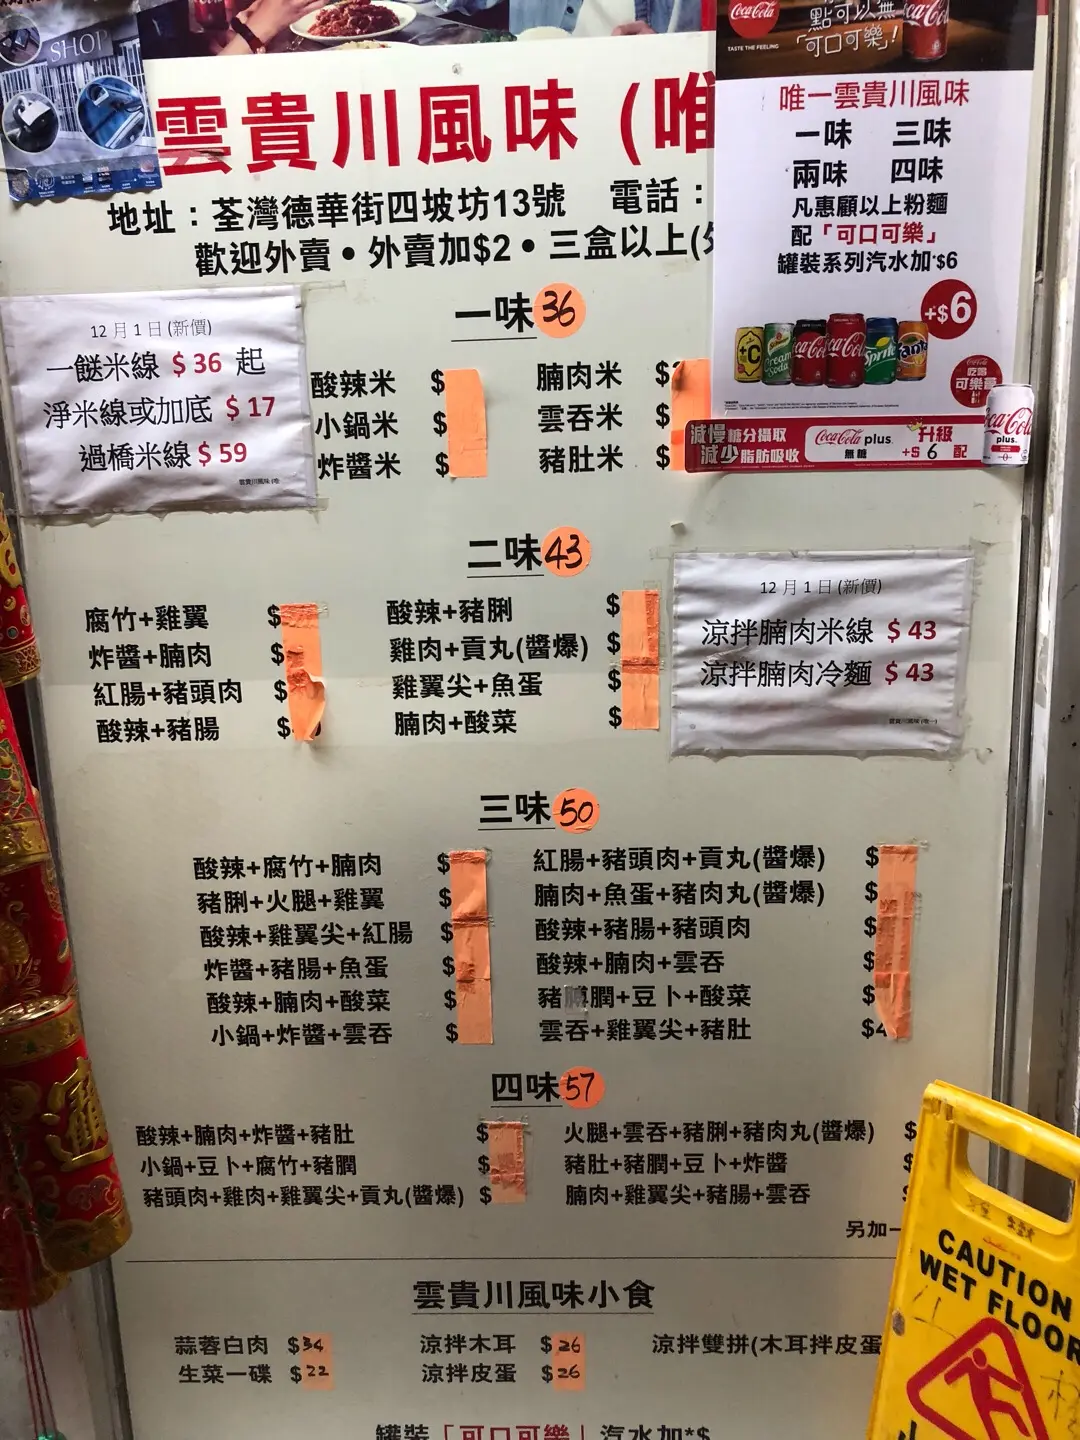 SHOP
Coca-Cola
TASTE THE FEELING
點可以無
「可口可樂」!
雲貴川風味 (唯
地址：荃灣德華街四坡坊13號 電話：
歡迎外賣•外賣加$2•三盒以上(外
唯一雲貴川風味
一味 三味
兩味 四味
凡惠顧以上粉麵
配「可口可樂」
罐裝系列汽水加*$6
+$6
吃喝
可樂
減慢糖分攝取
減少脂肪吸收
Coca-Cola plus
無糖
升級
+$6 配
Coca-Cola
plus
12月1日(新價)
一餸米線 $36 起
淨米線或加底 $17
過橋米線 $59
雲貴川風味(唯
一味 36
酸辣米 $ 腩肉米 $
小鍋米 $ 雲吞米 $
炸醬米 $ 豬肚米 $
二味 43
腐竹+雞翼 $ 酸辣+豬脷 $
炸醬+腩肉 $ 雞肉+貢丸(醬爆) $
紅腸+豬頭肉 $ 雞翼尖+魚蛋 $
酸辣+豬腸 $ 腩肉+酸菜 $
12月1日(新價)
涼拌腩肉米線 $43
涼拌腩肉冷麵 $43
雲貴川風味(唯一)
三味 50
酸辣+腐竹+腩肉 $ 紅腸+豬頭肉+貢丸(醬爆) $
豬脷+火腿+雞翼 $ 腩肉+魚蛋+豬肉丸(醬爆) $
酸辣+雞翼尖+紅腸 $ 酸辣+豬腸+豬頭肉 $
炸醬+豬腸+魚蛋 $ 酸辣+腩肉+雲吞 $
酸辣+腩肉+酸菜 $ 豬膶+豆卜+酸菜 $
小鍋+炸醬+雲吞 $ 雲吞+雞翼尖+豬肚 $4
四味 57
酸辣+腩肉+炸醬+豬肚 $ 火腿+雲吞+豬脷+豬肉丸(醬爆) $
小鍋+豆卜+腐竹+豬膶 $ 豬肚+豬膶+豆卜+炸醬
豬頭肉+雞肉+雞翼尖+貢丸(醬爆) $ 腩肉+雞翼尖+豬腸+雲吞
另加一
雲貴川風味小食
蒜蓉白肉 $34 涼拌木耳 $26 涼拌雙拼(木耳拌皮蛋
生菜一碟 $22 涼拌皮蛋 $26
罐裝「可口可樂」汽水加*$
CAUTION
WET FLOOR